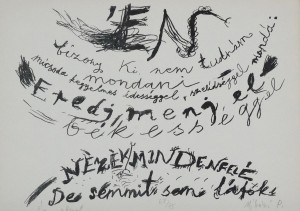 ÉN
bizony Ki nem tudnám
mondani
micsoda kegyelmes édességgel, szelidséggel mondá:
Eredj, menj el
békességgel
NÉZEK MINDENFELÉ
De semmit sem látok